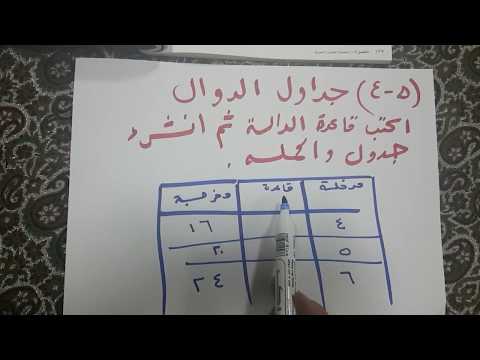 (٥-٤) جداول الدوال
اكتب قاعدة الدالة ثم انشىء
جدول واكمله.
مدخلة قاعدة مخرجة
٤ ١٦
٥ ٢٠
٦ ٢٤